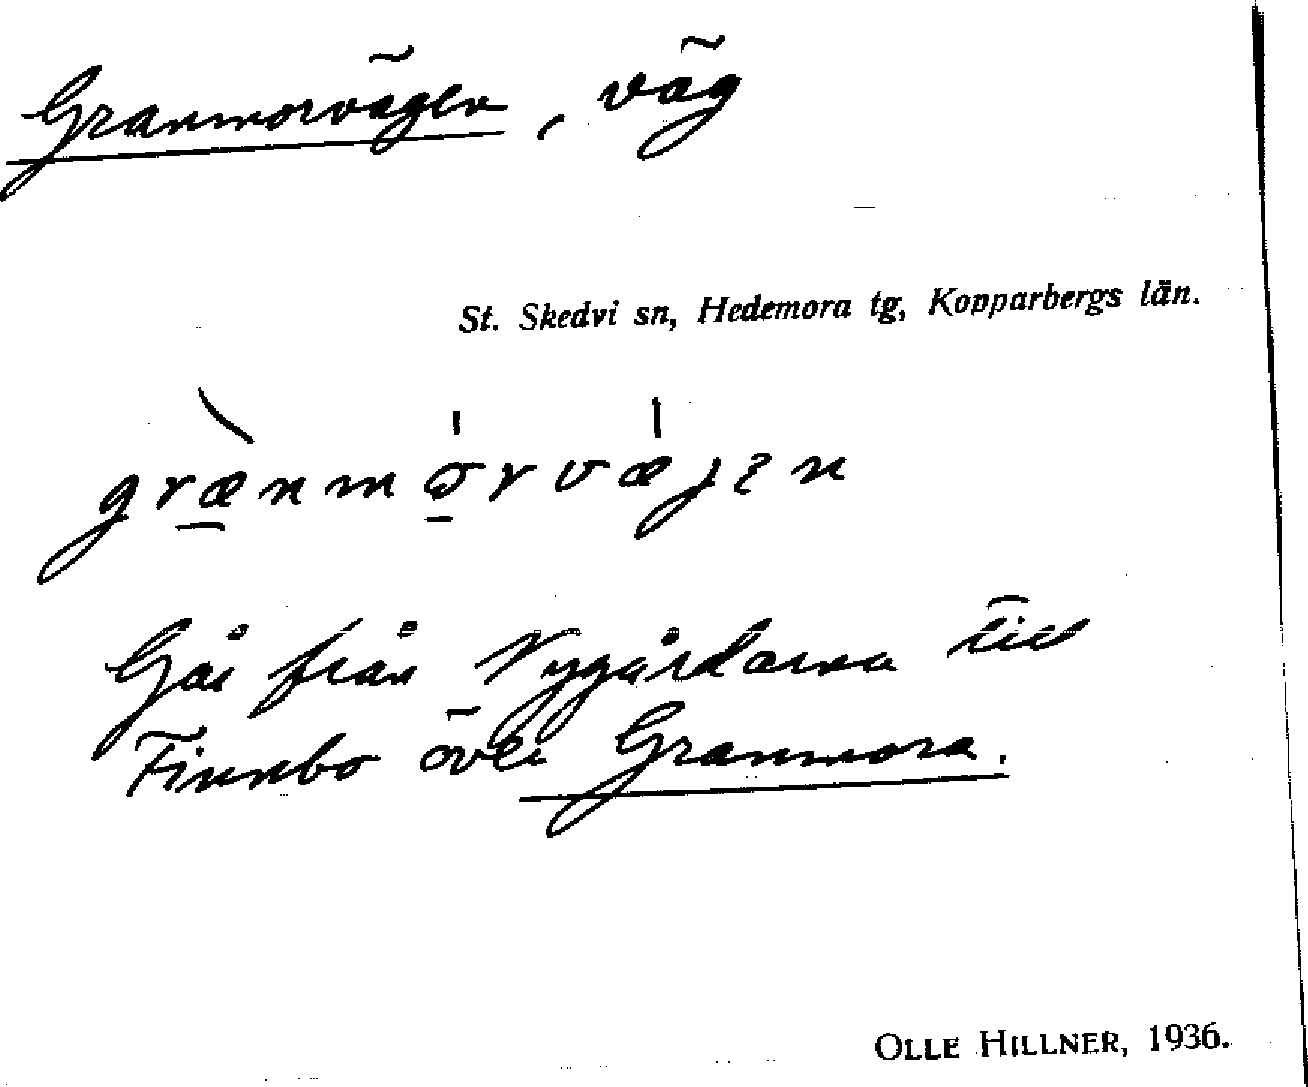 Granmorvägen, väg
St. Skedvi sn, Hedemora tg, Kopparbergs län.
Går från Nygårdarna till
Finnbo över Granmora.
OLLE HILLNER, 1936.